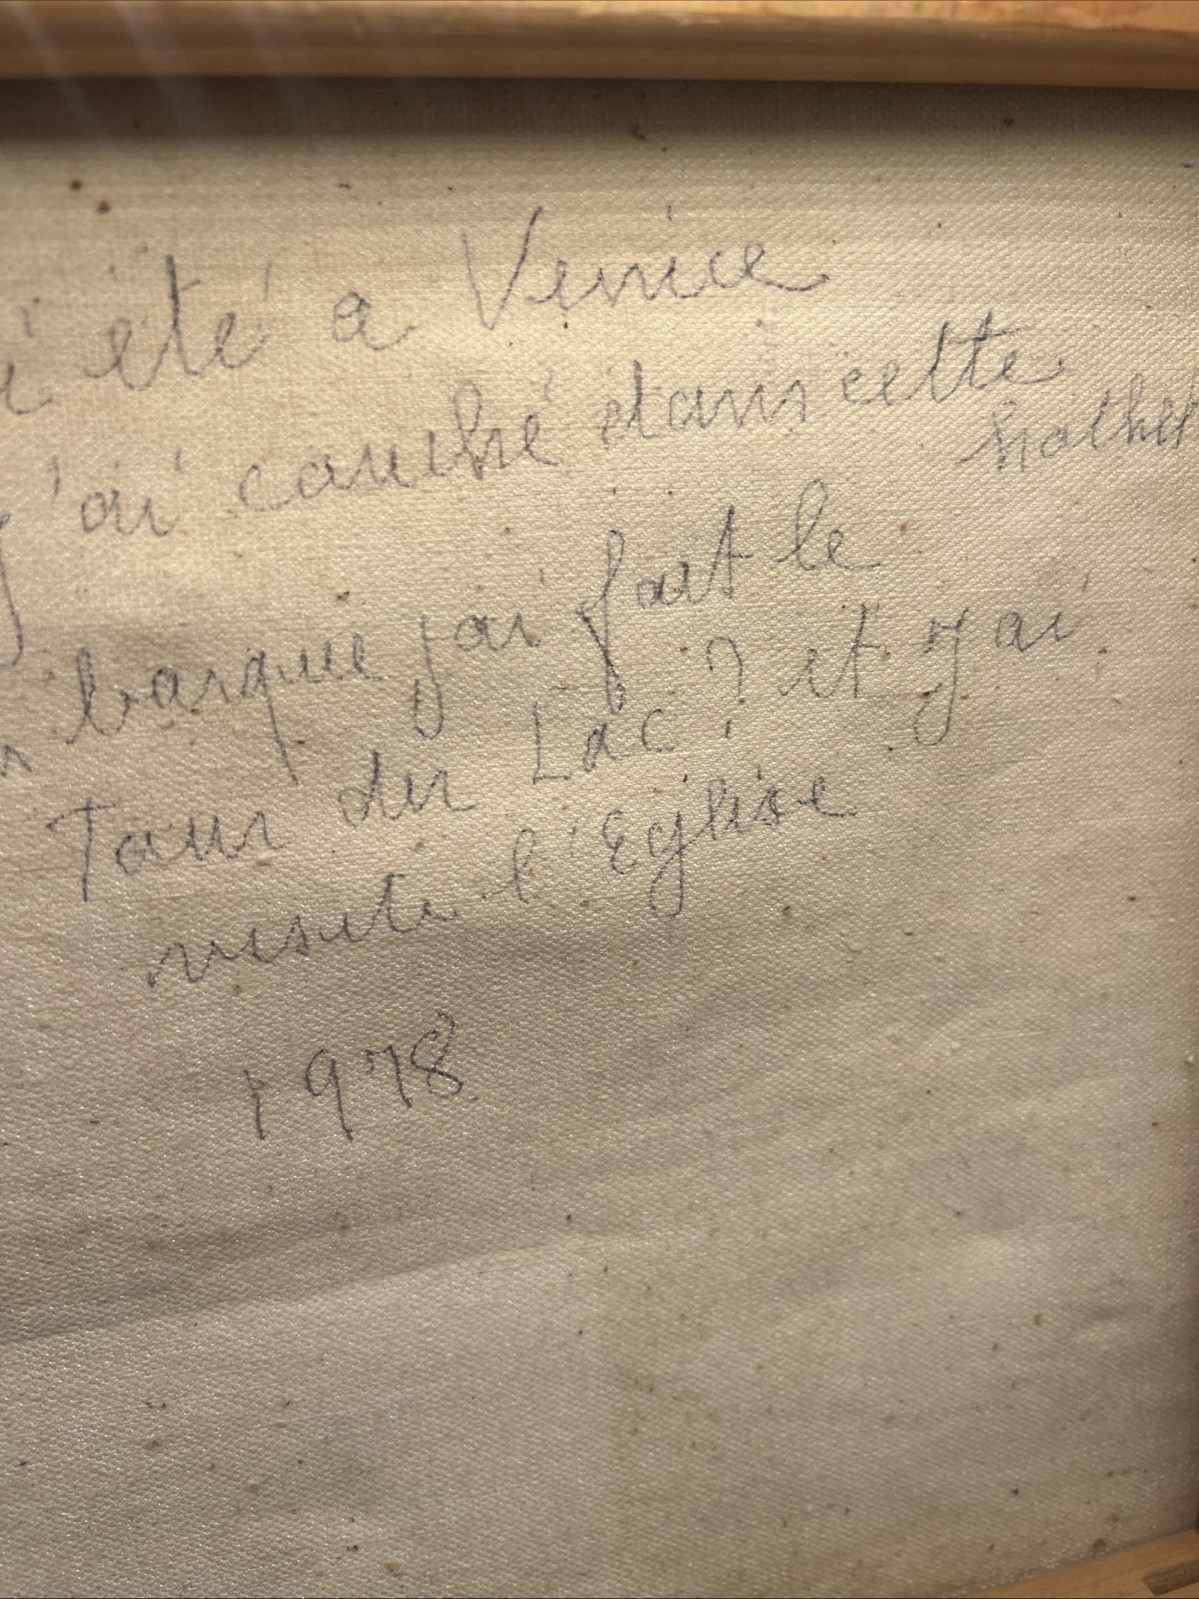 i été a Venice
j'ai couché dans cette
barque j'ai fait le
Tour du Lac ? et j'ai
visite l'Eglise
1978